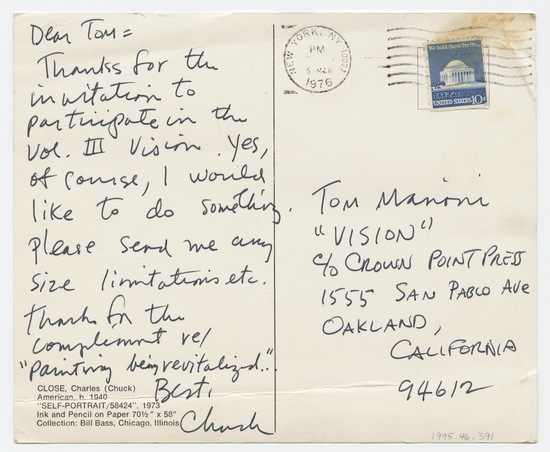 Dear Tom =
Thanks for the
invitation to
participate in the
Vol. III Vision. Yes,
of course, I would
like to do something.
Please send me any
size limitations etc.
Thanks for the
complement re/
"Painting being revitalized"..
Best,
Chuck
CLOSE, Charles (Chuck)
American, b. 1940
"SELF-PORTRAIT/58424", 1973
Ink and Pencil on Paper 70½" x 58"
Collection: Bill Bass, Chicago, Illinois
NEW YORK, NY
PM
5 MAR
1976
We hold these Truths...
UNITED STATES 10c
Tom Marioni
"VISION"
c/o CROWN POINT PRESS
1555 SAN PABLO AVE
OAKLAND,
CALIFORNIA
94612
1995.46.391